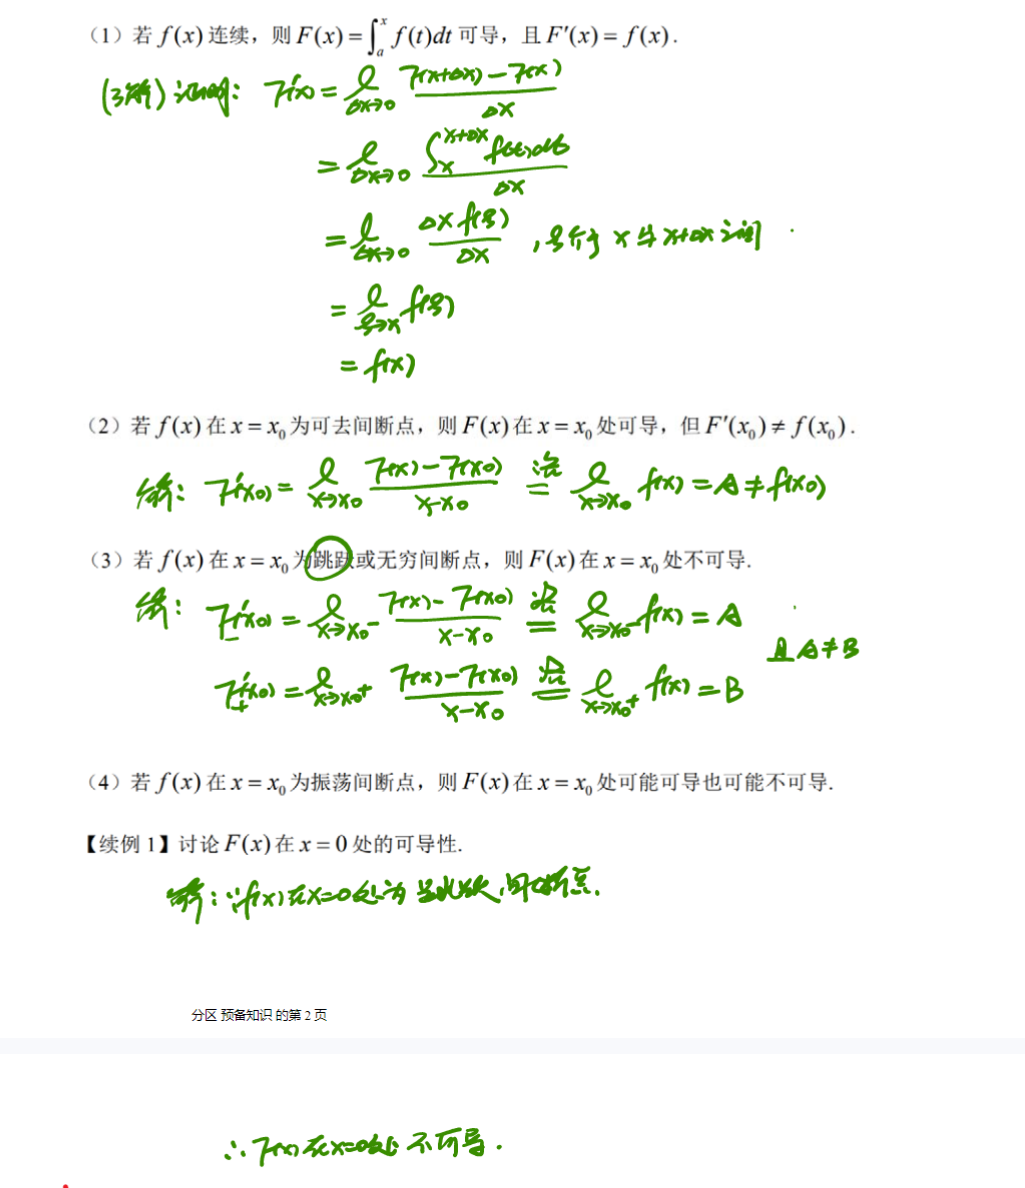 （1）若 f(x) 连续，则 F(x) = ∫_a^x f(t)dt 可导，且 F′(x) = f(x).
证明：F′(x) = l_{Δx→0} (F(x+Δx)−F(x))/Δx
= l_{Δx→0} (∫_x^{x+Δx} f(t)dt)/Δx
= l_{Δx→0} (Δx f(ξ))/Δx ，ξ介于 x 与 x+Δx 之间
= l_{ξ→x} f(ξ)
= f(x)
（2）若 f(x) 在 x = x₀ 为可去间断点，则 F(x) 在 x = x₀ 处可导，但 F′(x₀) ≠ f(x₀).
F′(x₀) = l_{x→x₀} (F(x)−F(x₀))/(x−x₀) 洛= l_{x→x₀} f(x) = A ≠ f(x₀)
（3）若 f(x) 在 x = x₀ 为跳跃或无穷间断点，则 F(x) 在 x = x₀ 处不可导.
F′₋(x₀) = l_{x→x₀⁻} (F(x)−F(x₀))/(x−x₀) 洛= l_{x→x₀⁻} f(x) = A
且 A≠B
F′₊(x₀) = l_{x→x₀⁺} (F(x)−F(x₀))/(x−x₀) 洛= l_{x→x₀⁺} f(x) = B
（4）若 f(x) 在 x = x₀ 为振荡间断点，则 F(x) 在 x = x₀ 处可能可导也可能不可导.
【续例 1】讨论 F(x) 在 x = 0 处的可导性.
∵ f(x) 在 x=0 处为跳跃间断点.
分区 预备知识 的第 2 页
∴ F(x) 在 x=0 处不可导.